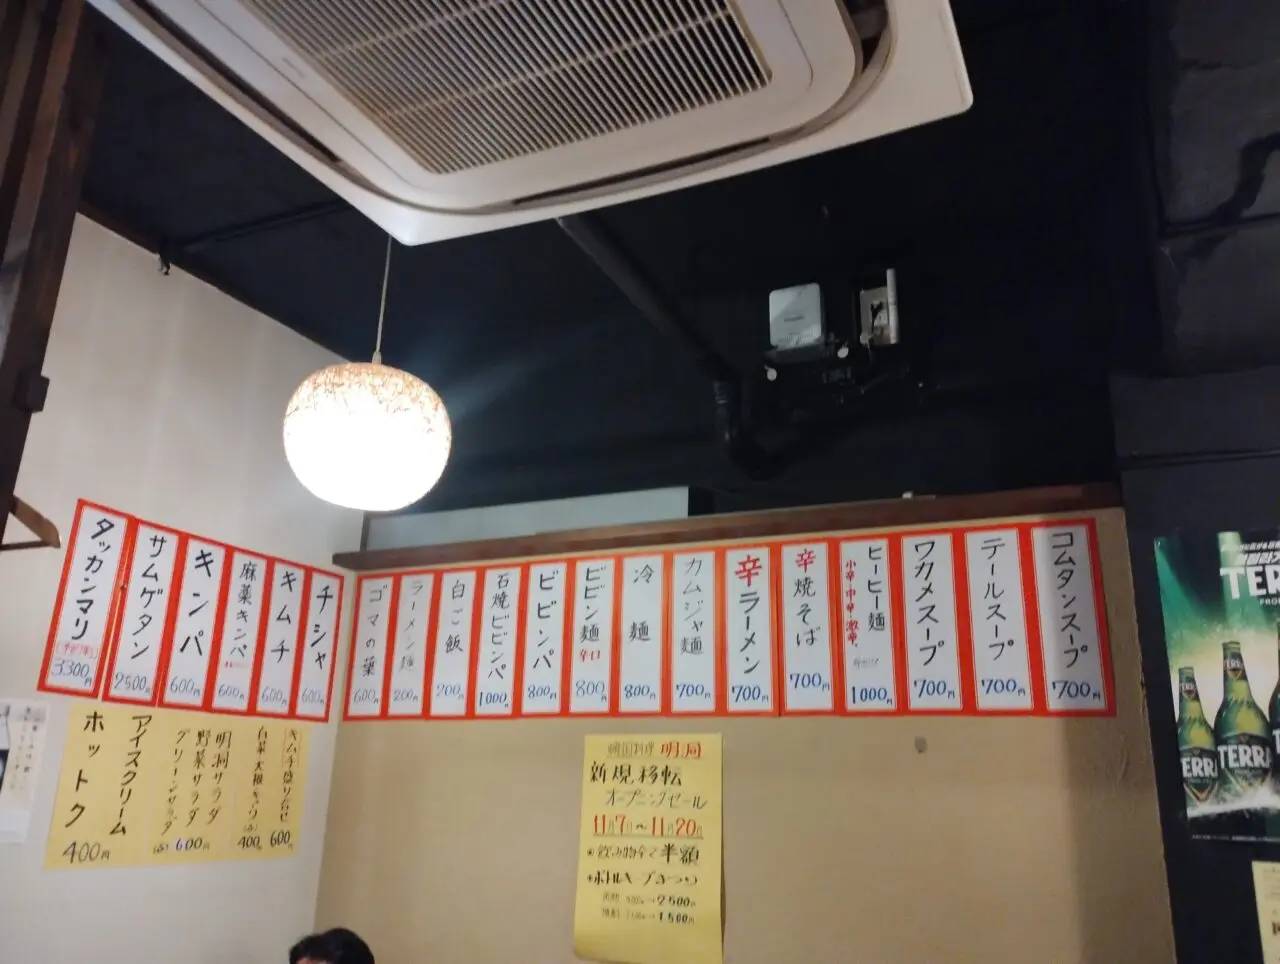 タッカンマリ
3,300円
サムゲタン
2500円
キンパ
600円
麻薬キンパ
600円
キムチ
600円
チシャ
600円
ゴマの葉
600円
ラーメン麺
200円
白ご飯
200円
石焼ビビンパ
1000円
ビビンパ
800円
ビビン麺
辛口
800円
冷麺
800円
カムジャ麺
700円
辛ラーメン
700円
辛焼そば
700円
ヒーヒー麺
小辛・中辛・激辛
1000円
ワカメスープ
700円
テールスープ
700円
コムタンスープ
700円
キムチ盛り合せ
600円
白菜・大根・キュウリ
(小)
400円
明洞サラダ
野菜サラダ
グリーンサラダ
(小)
600円
アイスクリーム
ホットク
400円
韓国料理 明洞
新規移転
オープニングセール
11月7日～11月20日
飲み物全て半額
ボトルキープまつり
→2500円
→1500円
TERRA
TERRA
TERRA